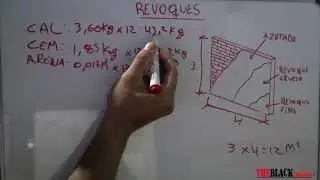 REVOQUES
CAL: 3,60kg x 12 = 43,2kg
CEM: 1,85kg x 12
ARENA: 0,017
AZOTADO
REVOQUE
GRUESO
REVOQUE
FINO
3
4
3 x 4 = 12 M²
THEBLACK